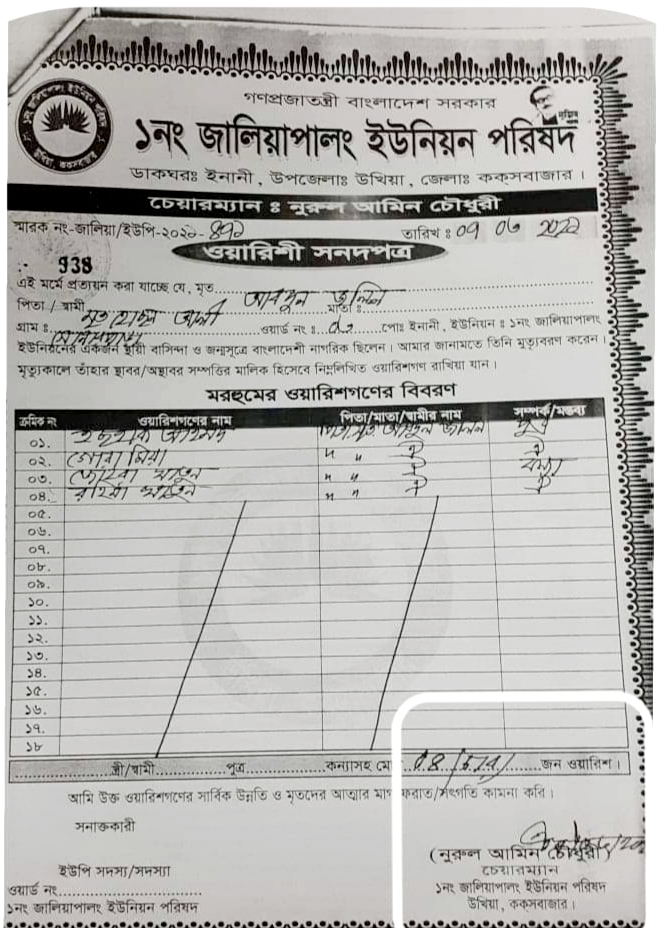 ১নং জালিয়াপালং ইউনিয়ন পরিষদ
উখিয়া, কক্সবাজার
গণপ্রজাতন্ত্রী বাংলাদেশ সরকার
১নং জালিয়াপালং ইউনিয়ন পরিষদ
ডাকঘরঃ ইনানী, উপজেলাঃ উখিয়া, জেলাঃ কক্সবাজার।
চেয়ারম্যান ঃ নুরুল আমিন চৌধুরী
স্মারক নং-জালিয়া/ইউপি-২০২১-
তারিখ ঃ ০৭ ০৬ ২০২২
ওয়ারিশী সনদপত্র
938
এই মর্মে প্রত্যয়ন করা যাচ্ছে যে, মৃত আবদুল জলিল
পিতা / স্বামী মৃত আলী মাতা ঃ
গ্রাম ঃ ওয়ার্ড নং ঃ পোঃ ইনানী, ইউনিয়ন ঃ ১নং জালিয়াপালং
ইউনিয়নের একজন স্থায়ী বাসিন্দা ও জন্মসূত্রে বাংলাদেশী নাগরিক ছিলেন। আমার জানামতে তিনি মৃত্যুবরণ করেন।
মৃত্যুকালে তাঁহার স্থাবর/অস্থাবর সম্পত্তির মালিক হিসেবে নিম্নলিখিত ওয়ারিশগণ রাখিয়া যান।
মরহুমের ওয়ারিশগণের বিবরণ
ক্রমিক নং ওয়ারিশগণের নাম পিতা/মাতা/স্বামীর নাম সম্পর্ক/মন্তব্য
০১. আহমদ পিতা মৃত আবদুল জলিল পুত্র
০২. মিয়া " " ঐ ঐ
০৩. খাতুন " " ঐ কন্যা
০৪. খাতুন " " ঐ ঐ
০৫.
০৬.
০৭.
০৮.
০৯.
১০.
১১.
১২.
১৩.
১৪.
১৫.
১৬.
১৭.
১৮
স্ত্রী/স্বামী পুত্র কন্যাসহ মোট ০৪ (চার) জন ওয়ারিশ।
আমি উক্ত ওয়ারিশগণের সার্বিক উন্নতি ও মৃতদের আত্মার মাগফেরাত/সৎগতি কামনা করি।
সনাক্তকারী
ইউপি সদস্য/সদস্যা
ওয়ার্ড নং
১নং জালিয়াপালং ইউনিয়ন পরিষদ
(নুরুল আমিন চৌধুরী)
চেয়ারম্যান
১নং জালিয়াপালং ইউনিয়ন পরিষদ
উখিয়া, কক্সবাজার।